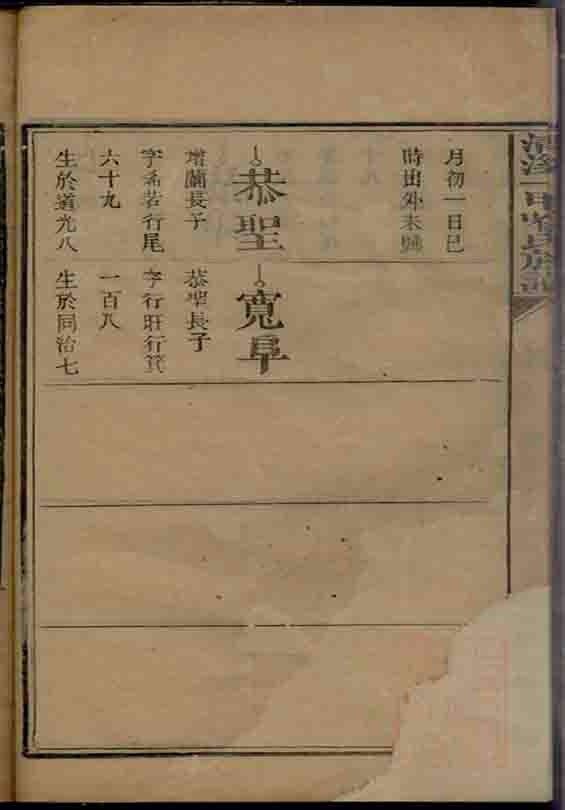 月初一日巳
時出外未歸
恭聖
增蘭長子
字希若行尾
六十九
生於道光八
寬阜
恭聖長子
字行旺行箕
一百八
生於同治七